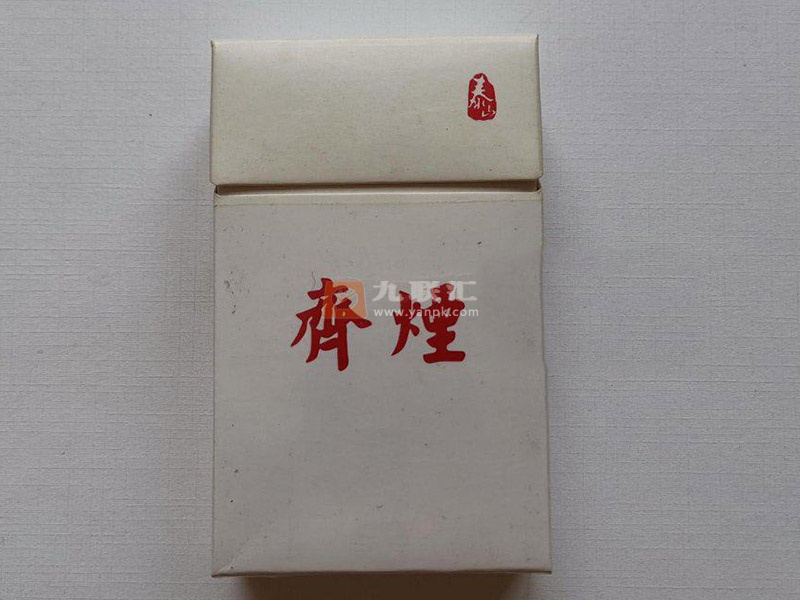 泰山
九联汇
www.yanpk.com
齊煙